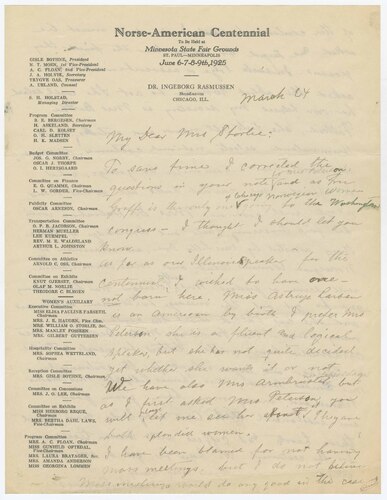 Norse-American Centennial
To be Held at
Minnesota State Fair Grounds
ST. PAUL—MINNEAPOLIS
June 6-7-8-9th, 1925
GISLE BOTHNE, President
N. T. MOEN, 1st Vice-President
A. C. FLOAN, 2nd Vice-President
J. A. HOLVIK, Secretary
TRYGVE OAS, Treasurer
A. UELAND, Counsel
S. H. HOLSTAD,
Managing Director
DR. INGEBORG RASMUSSEN
CHICAGO, ILL.
March 24
Program Committee
B. E. BERGESEN, Chairman
H. ASKELAND, Secretary
CARL D. KOLSET
O. H. SLETTEN
H. K. MADSEN
Budget Committee
JOS. G. NORBY, Chairman
OSCAR J. THORPE
O. I. HERTSGAARD
Committee on Finance
E. G. QUAMME, Chairman
L. W. GORDER, Vice-Chairman
Publicity Committee
OSCAR ARNESON, Chairman
Transportation Committee
O. P. B. JACOBSON, Chairman
HERMAN MUELLER
LEE KUEMPEL
REV. M. E. WALDELAND
ARTHUR L. JOHNSTON
Committee on Athletics
ARNOLD C. OSS, Chairman
Committee on Exhibits
KNUT GJERSET, Chairman
OLAF M. NORLIE
THEODORE C. BLEGEN
WOMEN'S AUXILIARY
Executive Committee
MISS ELISA PAULINE FARSETH,
Chairman
MRS. J. R. HAUGEN, Vice-Chm.
MRS. WILLIAM O. STORLIE, Sec.
MRS. MANLEY FOSSEEN
MRS. GILBERT GUTTERSEN
Hospitality Committee
MRS. SOPHIA WETTELAND,
Chairman
Reception Committee
MRS. GISLE BOTHNE, Chairman
Committee on Concessions
MRS. J. O. LEE, Chairman
Committee on Exhibits
MISS HERBORG REQUE,
Chairman
MRS. BERTHA DAHL LAWS,
Vice-Chairman
Program Committee
MRS. A. C. FLOAN, Chairman
MISS GUNHILD OFTEDAL,
Vice-Chairman
MRS. LAURA BRATAGER, Sec.
MRS. AMANDA ANDERSON
MISS GEORGINA LOMMEN
My Dear Mrs Storlie:
To save time I corrected the
questions in your note, and as
the only Norwegian woman
to the Washington
congress — I thought I should let you
know.
As for as our Illinois Speaker for the
Centennial I wished to have one
not born here. Miss Astrup Larsen
is an American by birth. I prefer Mrs
Peterson she is eloquent and logical
speaker, but she has not quite decided
yet whether she wants it or not.
We have also Mrs Armbruster, but
as I first asked Mrs Peterson, you
will let me settle that. They are
both splendid women.
I have been blamed for not having
mass meetings, but I do not believe
Mass meetings would do any good in the case